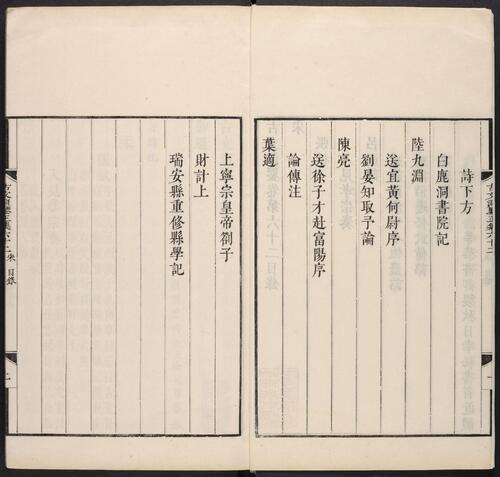 詩下方
白鹿洞書院記
陸九淵
送宜黃何尉序
劉晏知取予論
陳亮
送徐子才赴富陽序
論傳注
葉適
上寧宗皇帝劄子
財計上
瑞安縣重修縣學記